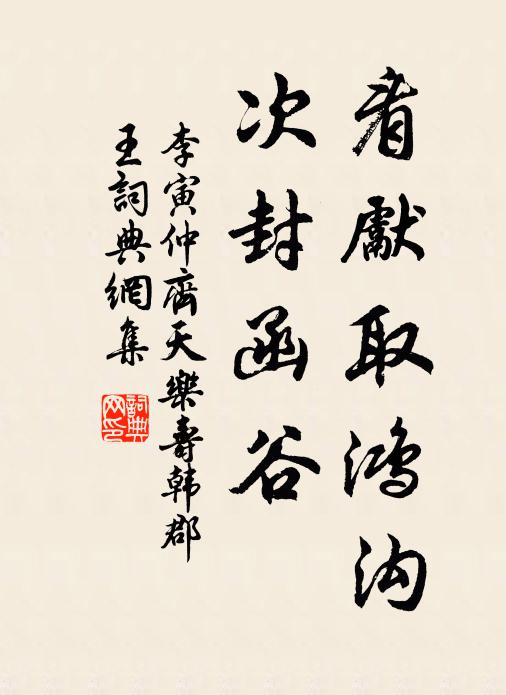 看獻取鴻沟
次封函谷
李寅仲齊天樂壽韩郡
王詞典網集
詞典
网印